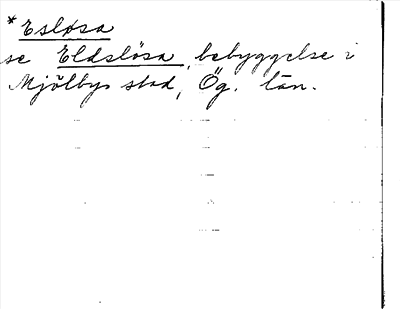 *Eslösa
se Eldslösa, bebyggelse i
Mjölby stad, Ög. län.